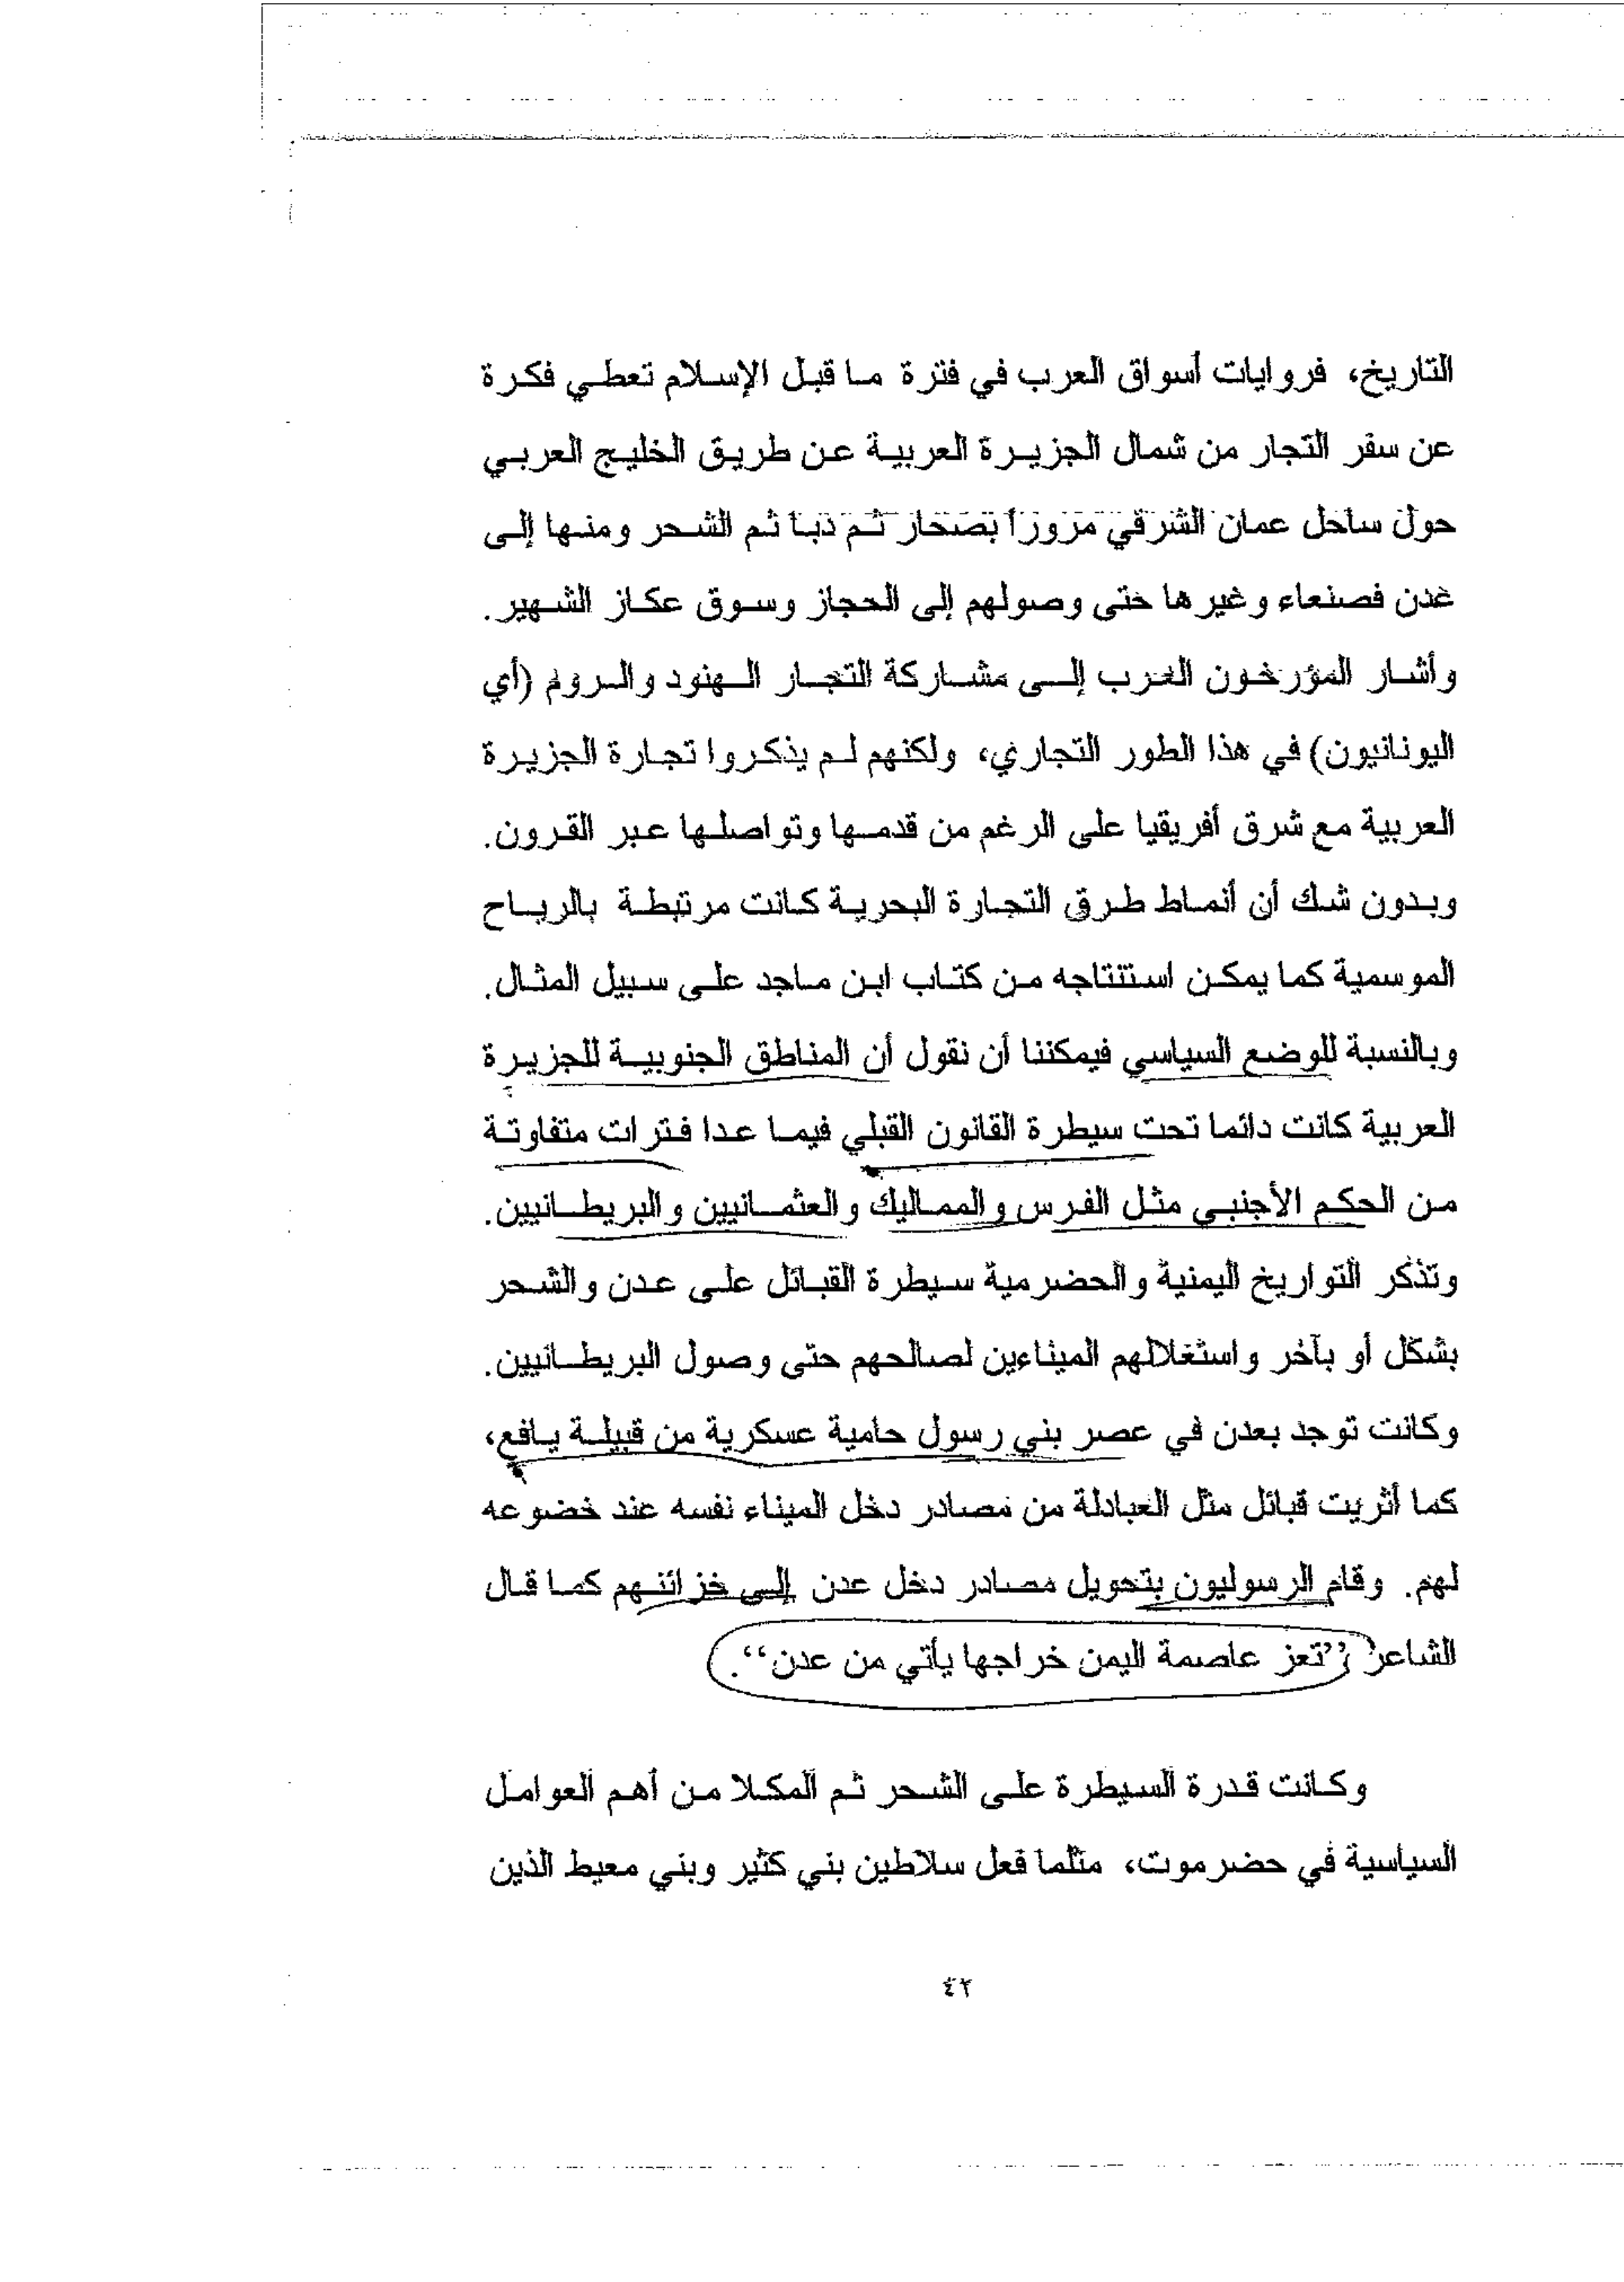 التاريخ، فروايات أسواق العرب في فترة ما قبل الإسلام تعطي فكرة
عن سفر التجار من شمال الجزيرة العربية عن طريق الخليج العربي
حول ساحل عمان الشرقي مروراً بصحار ثم دبا ثم الشحر ومنها إلى
عدن فصنعاء وغيرها حتى وصولهم إلى الحجاز وسوق عكاز الشهير.
وأشار المؤرخون العرب إلى مشاركة التجار الهنود والروم (أي
اليونانيون) في هذا الطور التجاري، ولكنهم لم يذكروا تجارة الجزيرة
العربية مع شرق أفريقيا على الرغم من قدمها وتواصلها عبر القرون.
وبدون شك أن أنماط طرق التجارة البحرية كانت مرتبطة بالرياح
الموسمية كما يمكن استنتاجه من كتاب ابن ماجد على سبيل المثال.
وبالنسبة للوضع السياسي فيمكننا أن نقول أن المناطق الجنوبية للجزيرة
العربية كانت دائما تحت سيطرة القانون القبلي فيما عدا فترات متفاوتة
من الحكم الأجنبي مثل الفرس والمماليك والعثمانيين والبريطانيين.
وتذكر التواريخ اليمنية والحضرمية سيطرة القبائل على عدن والشحر
بشكل أو بآخر واستغلالهم الميناءين لصالحهم حتى وصول البريطانيين.
وكانت توجد بعدن في عصر بني رسول حامية عسكرية من قبيلة يافع،
كما أثريت قبائل مثل العبادلة من مصادر دخل الميناء نفسه عند خضوعه
لهم. وقام الرسوليون بتحويل مصادر دخل عدن إلى خزائنهم كما قال
الشاعر ”تعز عاصمة اليمن خراجها يأتي من عدن“.
وكانت قدرة السيطرة على الشحر ثم المكلا من أهم العوامل
السياسية في حضرموت، مثلما فعل سلاطين بني كثير وبني معيط الذين
٤٢